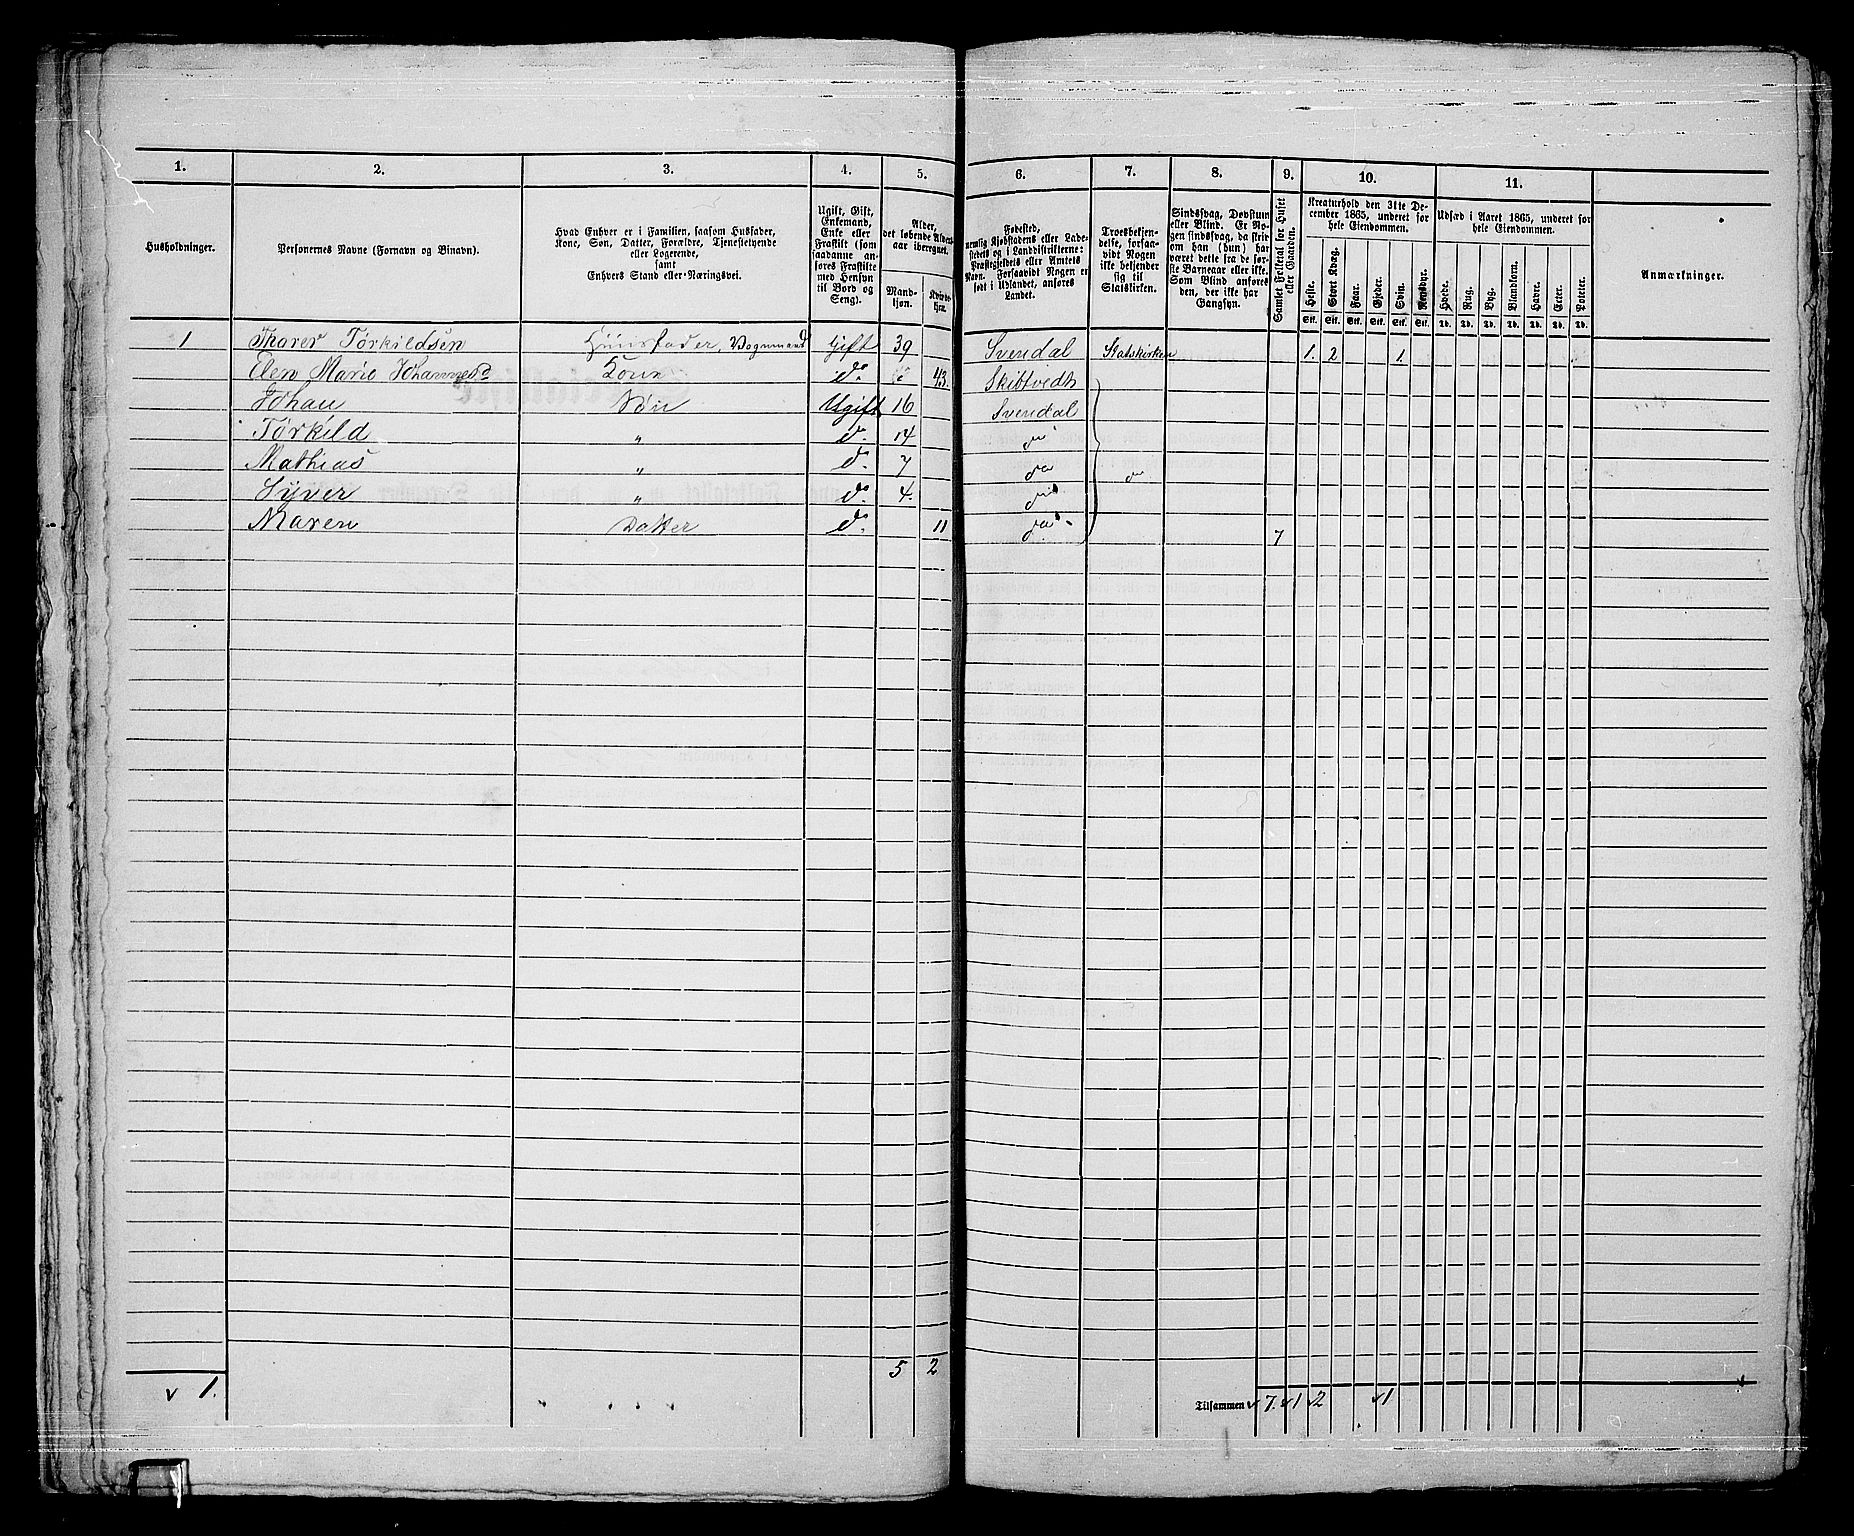 1. 2. 3. 4. 5. 6. 7. 8. 9. 10. 11.
Husholdninger.
Personernes Navne (Fornavn og Binavn).
Hvad Enhver er i Familien, saasom Husfader,
Kone, Søn, Datter, Forældre, Tjenestetyende
eller Logerende,
samt
Enhvers Stand eller Næringsvei.
Ugift, Gift,
Enkemand,
Enke eller
Fraskilt (som
saadanne an-
føres Fraskilte
med Hensyn
til Bord og
Seng).
Alder,
det løbende Alders-
aar iberegnet.
Mand-
kjøn.
Kvinde-
kjøn.
Fødested,
nemlig Kjøbstadens eller Lade-
stedets og i Landdistrikterne:
Præstegjeldets eller Amtets
Navn. Forsaavidt Nogen er
født i Udlandet, anføres
Landet.
Troesbekjen-
delse, forsaa-
vidt Nogen
ikke bekjender
sig til
Statskirken.
Sindssvag, Døvstum
eller Blind. Er No-
gen sindssvag, da skriv
om han (hun) har
været dette fra de før-
ste Barneaar eller ikke.
Som Blind anføres
den, der ikke har
Gangsyn.
Samlet Folketal for Huset
eller Gaarden.
Kreaturhold den 31te De-
cember 1865, underet for
hele Eiendommen.
Heste. Stort Kvæg. Faar. Gjeder. Svin. Rensdyr.
Stk. Stk. Stk. Stk. Stk. Stk.
Udsæd i Aaret 1865, underet for
hele Eiendommen.
Hvede. Rug. Byg. Blandkorn. Havre. Erter. Poteter.
Td. Td. Td. Td. Td. Td. Td.
Anmærkninger.
1 Thorer Torkildsen Huusfader, Vognmand Gift 39 Svendal Statskirken 1. 2 1.
Elen Marie Johannesd Kone do. 43. Skibtvedt
Johan Søn Ugift 16 Svendal
Torkild " do. 14 do
Mathias " do. 7 do do
Syver " do. 4. do
Maren Datter do. 11 do 7
5 2
v 1.
Tilsammen v 7. v 1 v 2 v 1